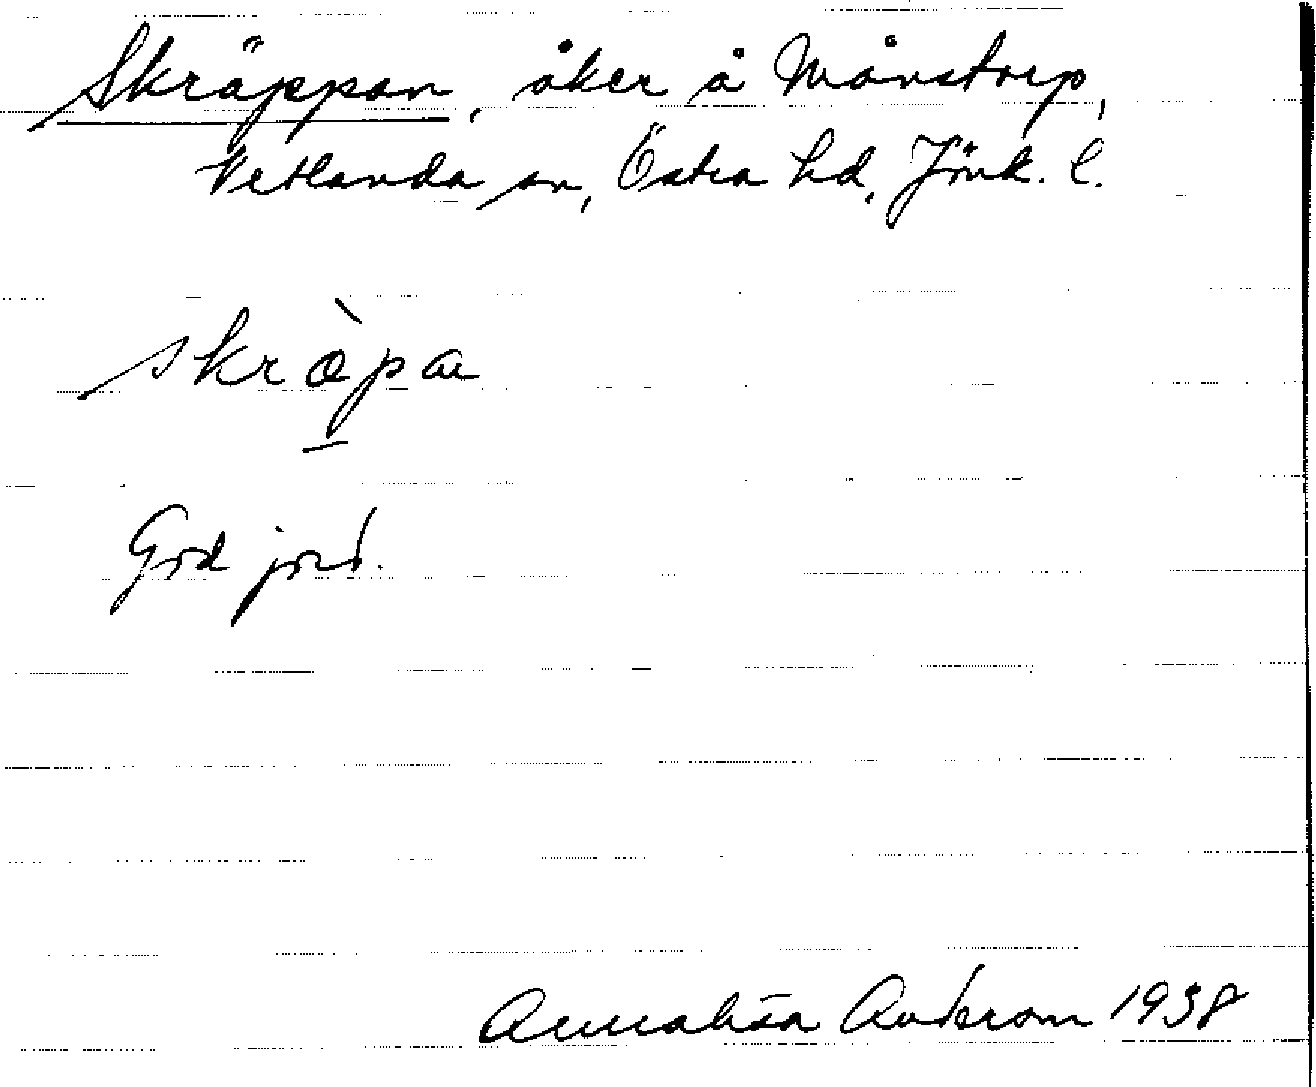 Skräppan, åker å Månstorp,
Vetlanda sn, Östra hd, Jönk. l.
skrὰpa
God jord.
Annalisa Anderson 1938